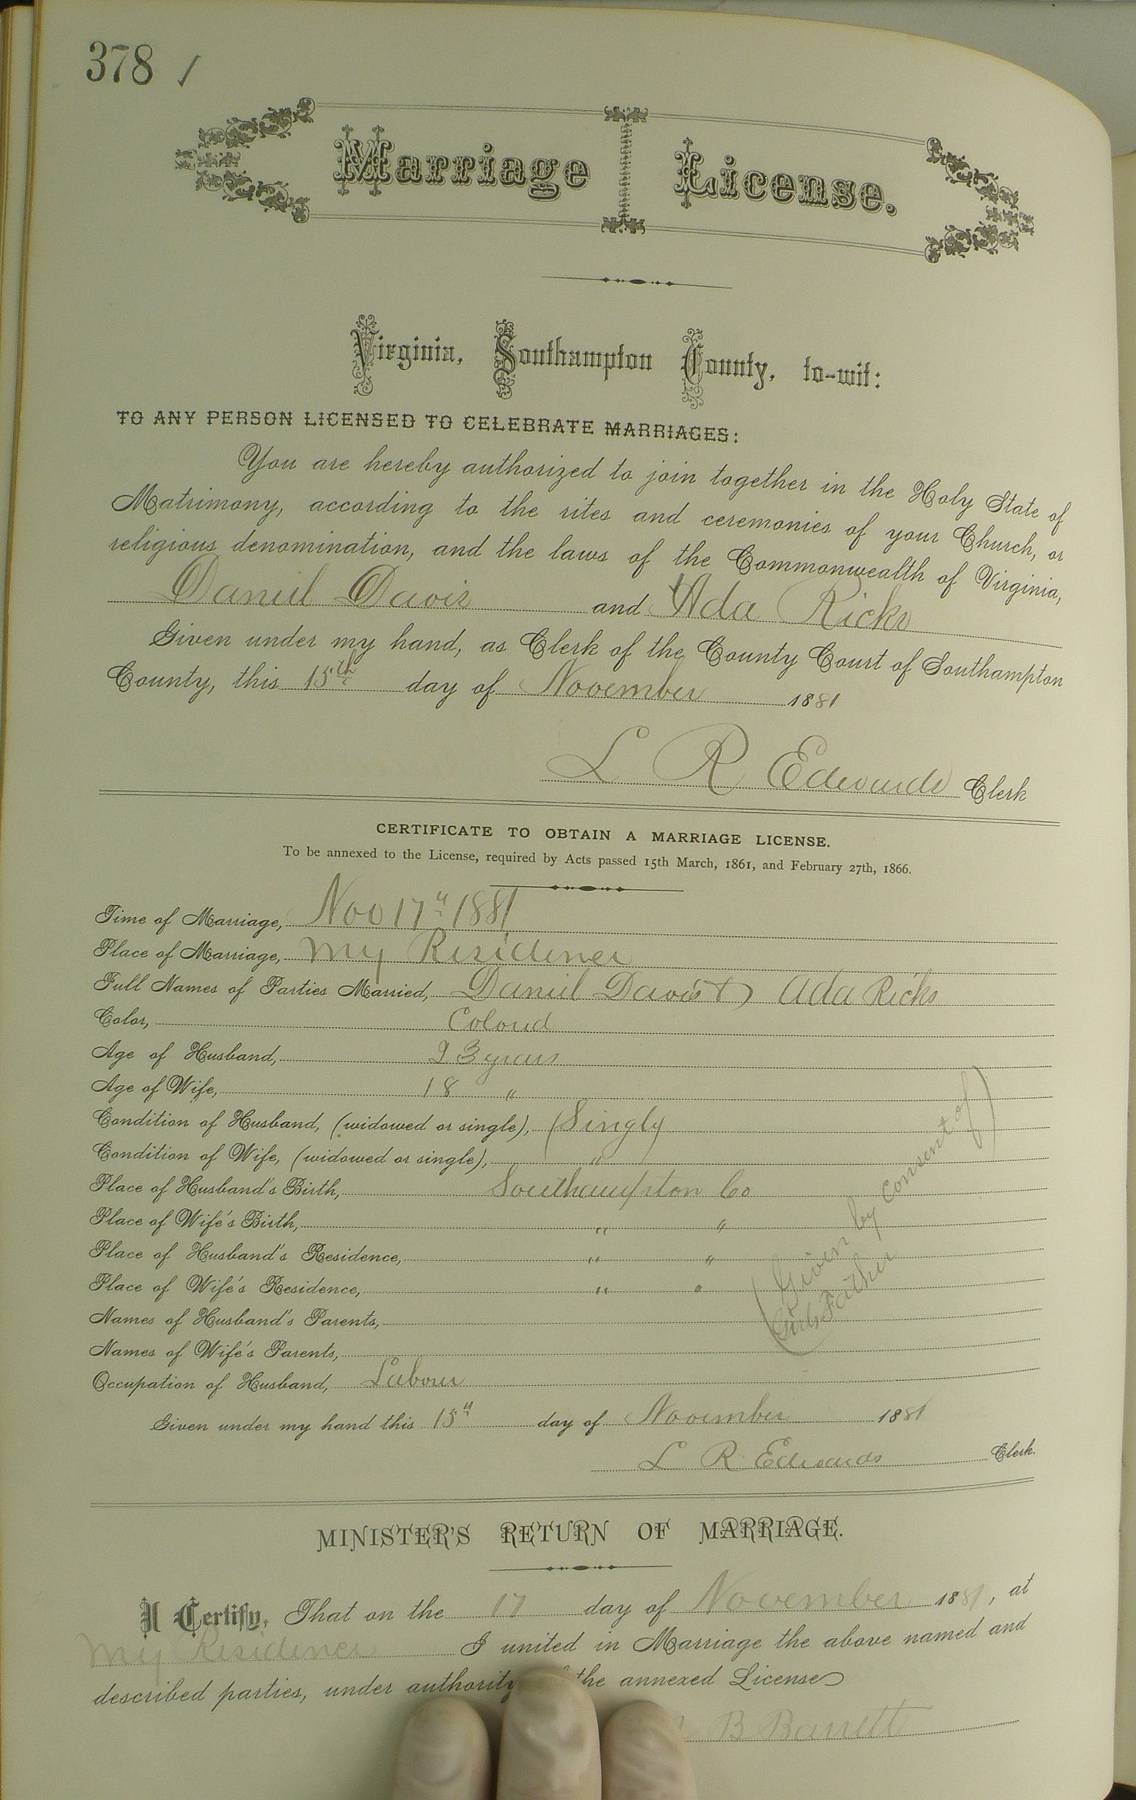 378 ✓
Marriage License.
Virginia, Southampton County, to-wit:
TO ANY PERSON LICENSED TO CELEBRATE MARRIAGES:
You are hereby authorized to join together in the Holy State of
Matrimony, according to the rites and ceremonies of your Church, or
religious denomination, and the laws of the Commonwealth of Virginia,
Daniel Davis and Ada Ricks
Given under my hand, as Clerk of the County Court of Southampton
County, this 15th day of November 1881
L R Edwards Clerk
CERTIFICATE TO OBTAIN A MARRIAGE LICENSE.
To be annexed to the License, required by Acts passed 15th March, 1861, and February 27th, 1866.
Time of Marriage, Nov 17" 1881
Place of Marriage, My Residence
Full Names of Parties Married, Daniel Davis & Ada Ricks
Color, Colord
Age of Husband, 23 years
Age of Wife, 18 "
Condition of Husband, (widowed or single), (Singly
Condition of Wife, (widowed or single), "
Place of Husband's Birth, Southampton Co
Place of Wife's Birth, " "
Place of Husband's Residence, " "
Place of Wife's Residence, " "
Names of Husband's Parents,
Names of Wife's Parents,
(Given by consent of)
Girls Father
Occupation of Husband, Labour
Given under my hand this 15" day of November 1881
L R Edwards Clerk.
MINISTER'S RETURN OF MARRIAGE.
I Certify, That on the 17 day of November 1881, at
My Residence I united in Marriage the above named and
described parties, under authority the annexed License
B Barrett